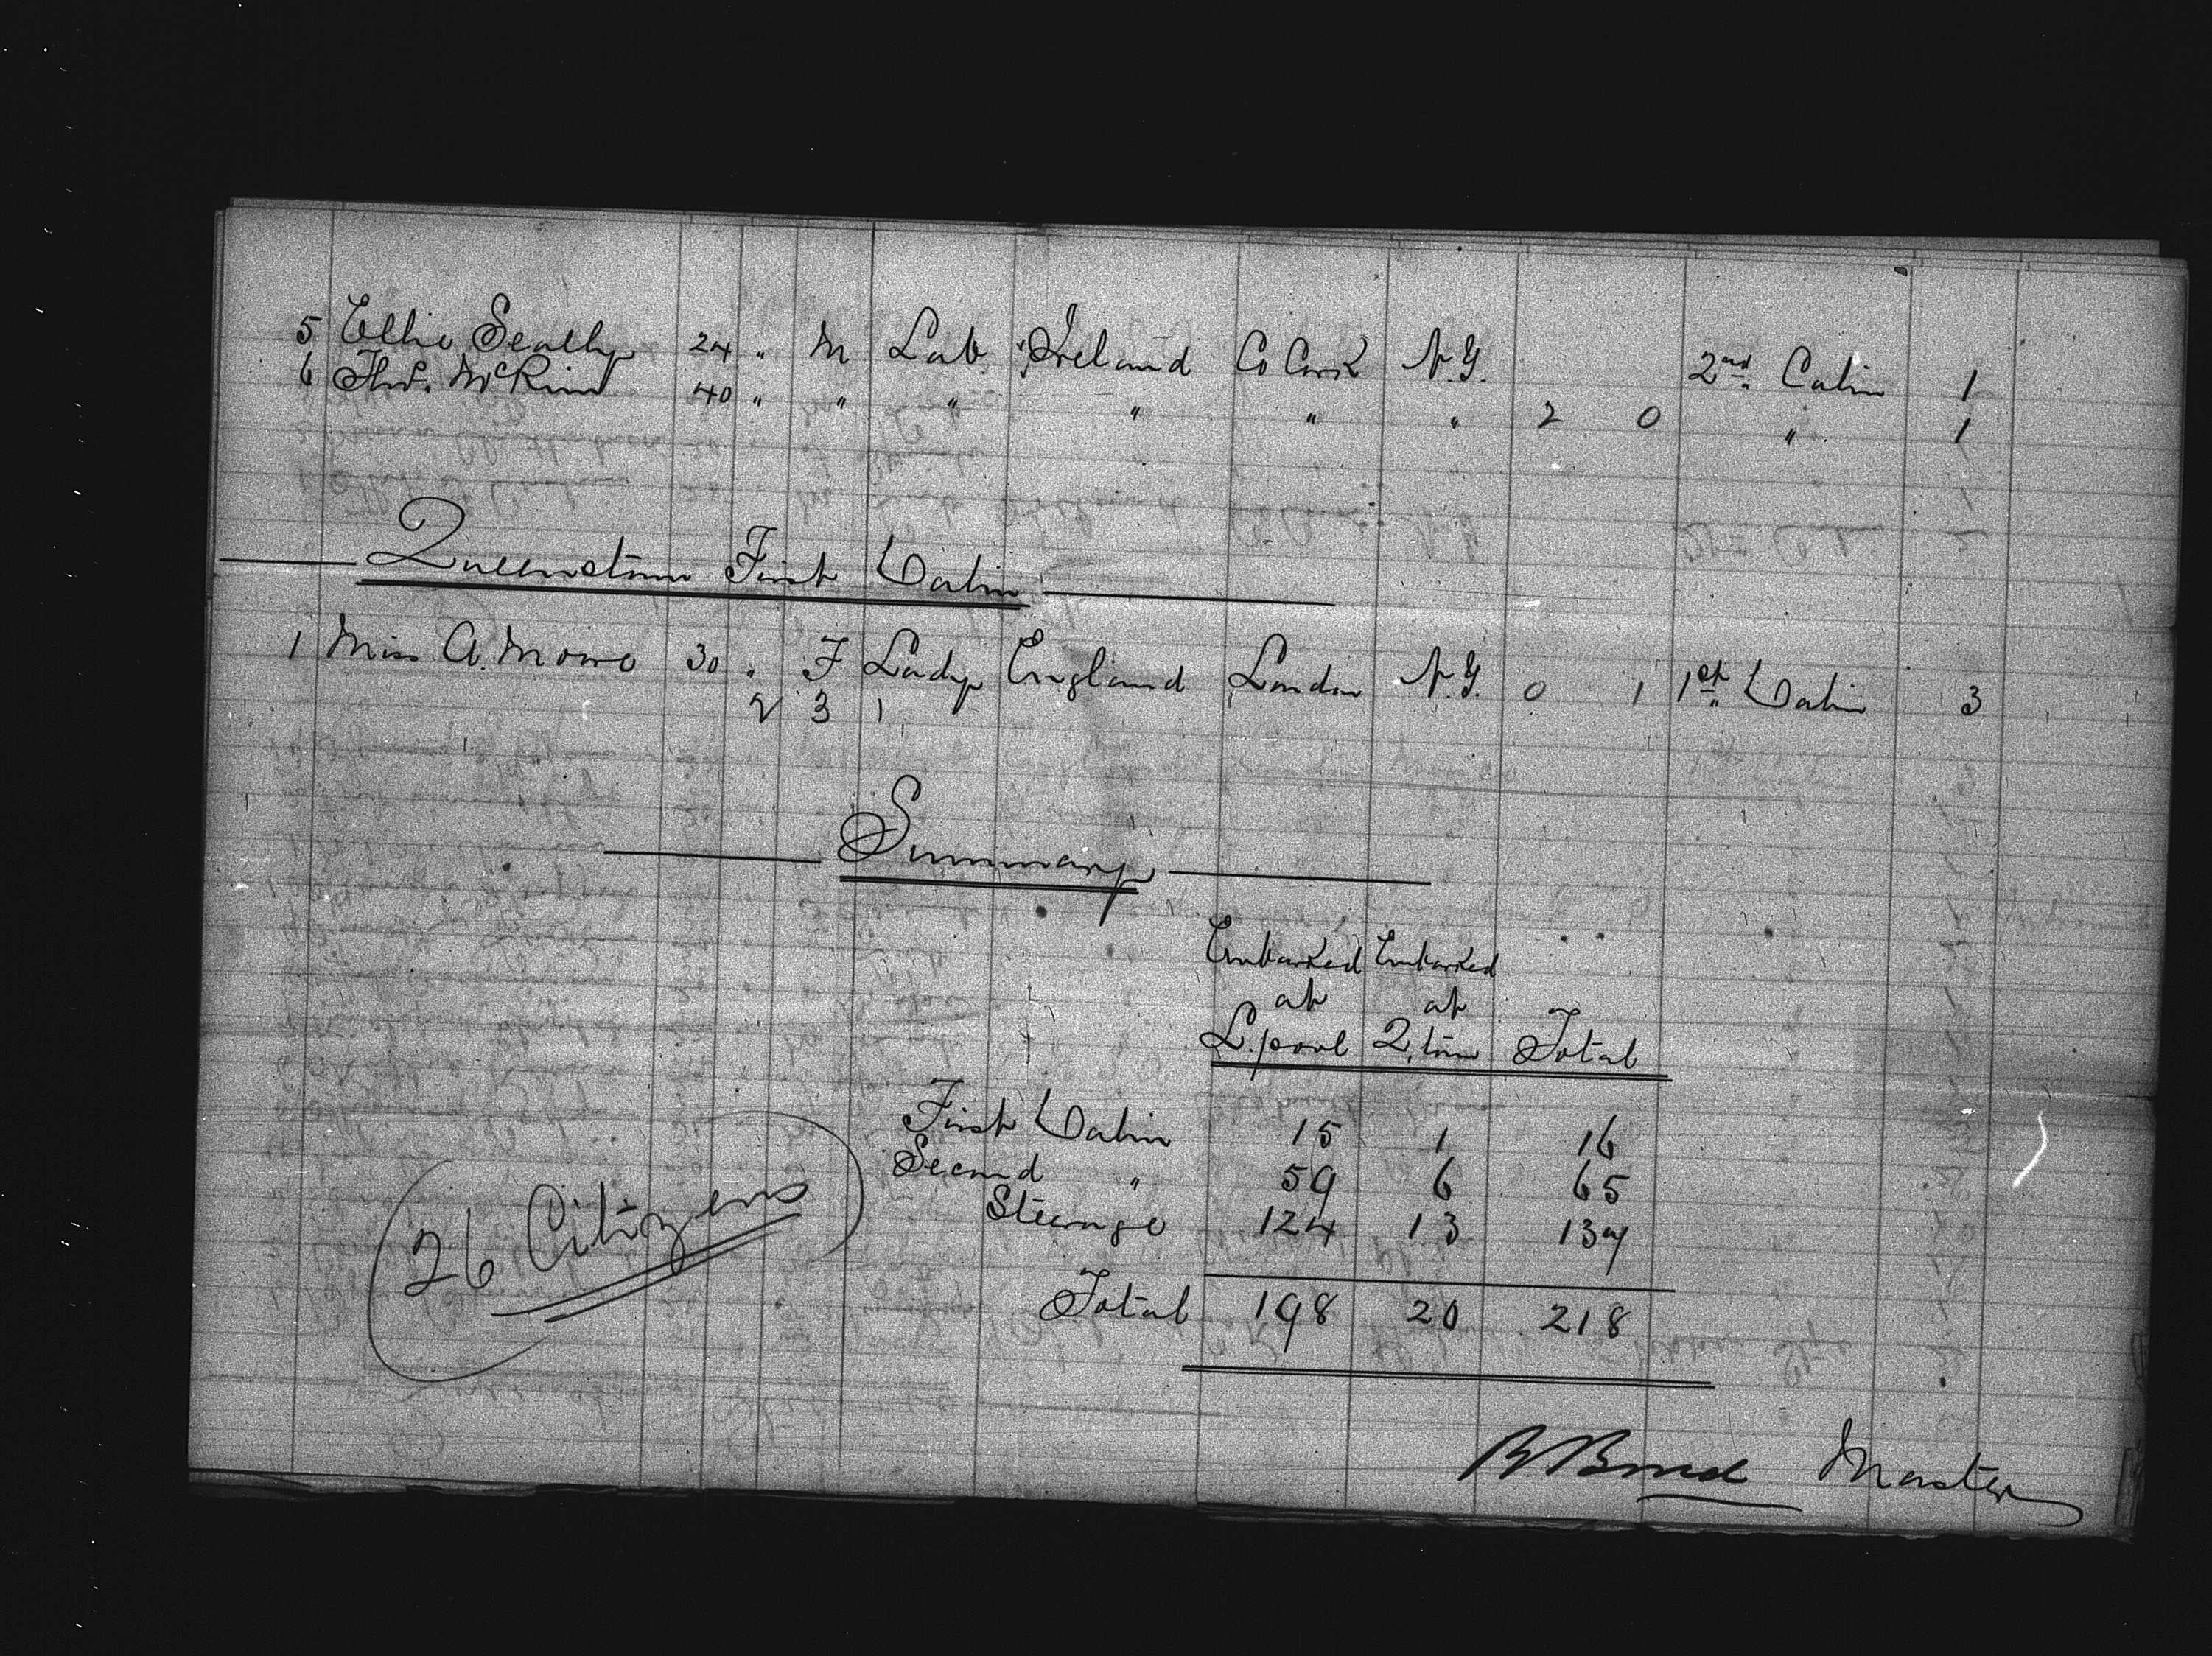 5 Ellie Scully 24 " M Lab Ireland Co Cork N.Y. 2nd Cabin 1
6 Thos. McKim 40 " " " " " " 2 0 " 1
Queenstown First Cabin
1 Miss A. Mowe 30 " F Lady England London N.Y. 0 1 1st Cabin 3
2 3 1
Summary
Embarked Embarked
at at
L.pool Q.town Total
First Cabin 15 1 16
Second " 59 6 65
Steerage 124 13 137
26 Citizens
Total 198 20 218
Bond Master